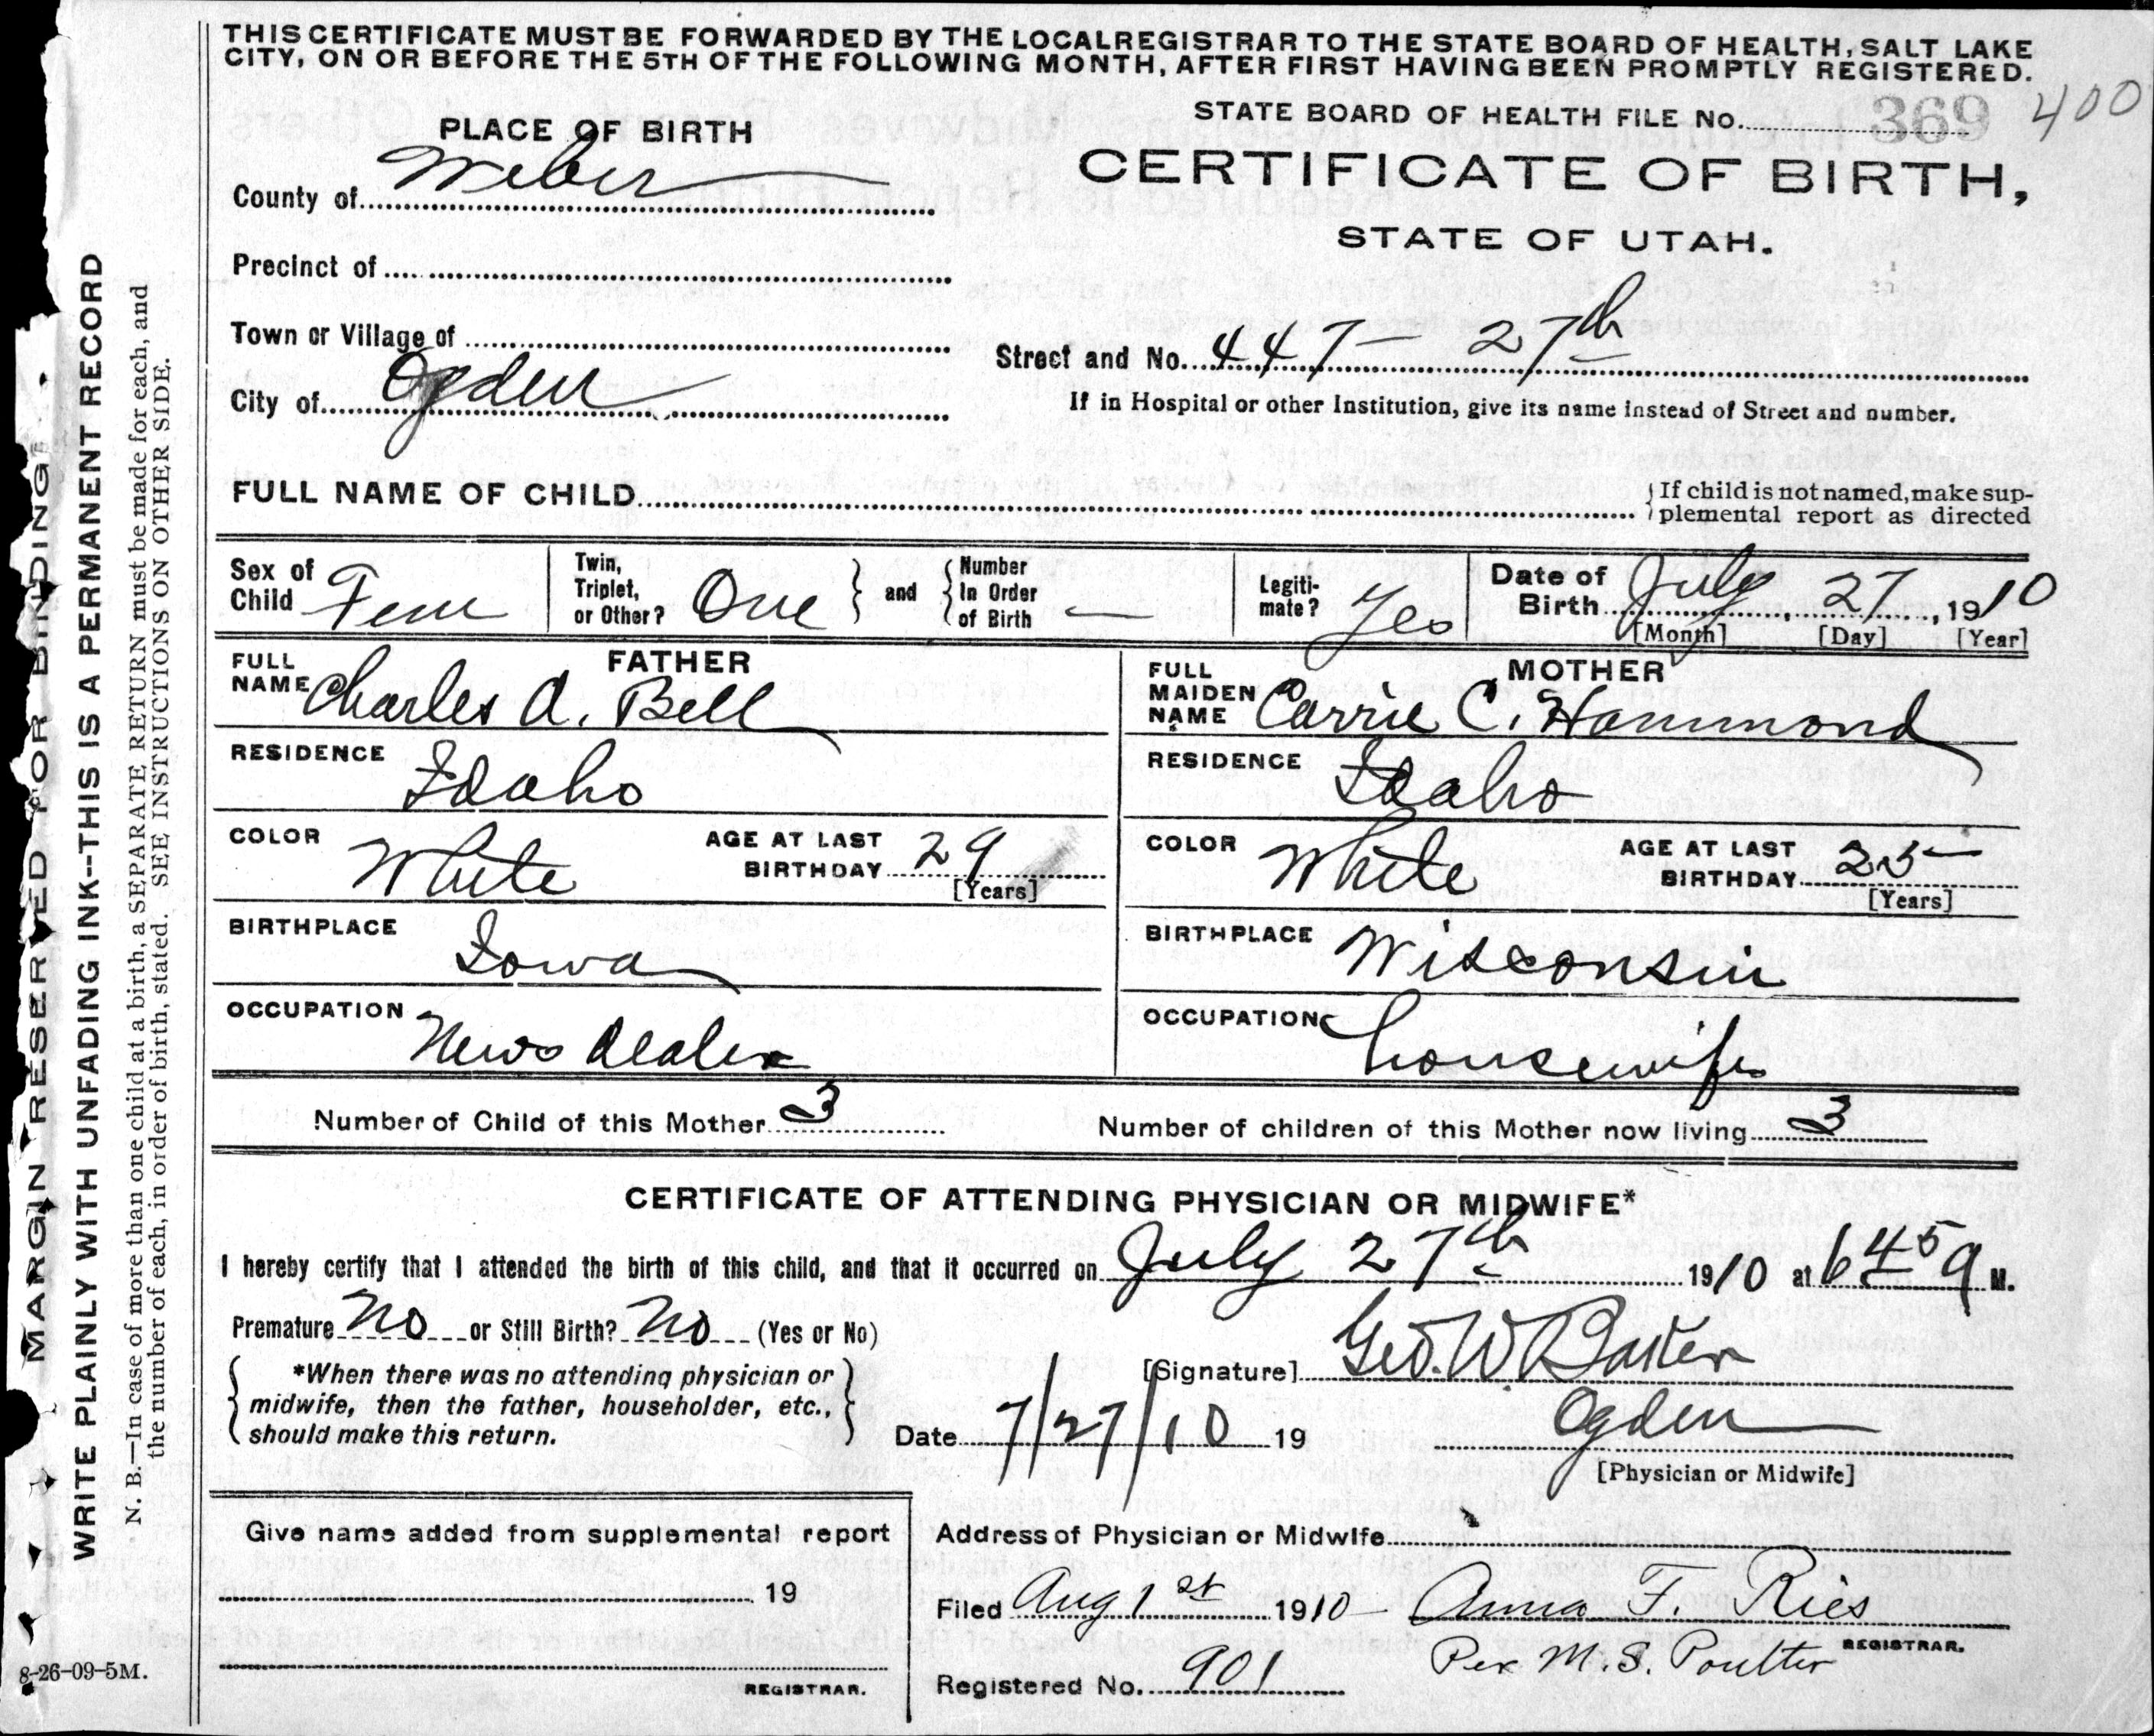 THIS CERTIFICATE MUST BE FORWARDED BY THE LOCAL REGISTRAR TO THE STATE BOARD OF HEALTH, SALT LAKE
CITY, ON OR BEFORE THE 5TH OF THE FOLLOWING MONTH, AFTER FIRST HAVING BEEN PROMPTLY REGISTERED.
STATE BOARD OF HEALTH FILE No. 369 400
PLACE OF BIRTH
CERTIFICATE OF BIRTH,
County of Weber
STATE OF UTAH.
Precinct of
Town or Village of
Street and No. 447 - 27th
City of Ogden
If in Hospital or other Institution, give its name instead of Street and number.
FULL NAME OF CHILD
If child is not named, make sup-
plemental report as directed
Sex of Child Fem
Twin, Triplet, or Other? One
and
Number In Order of Birth —
Legiti-mate? Yes
Date of Birth July 27, 1910
[Month] [Day] [Year]
FATHER
FULL NAME Charles A. Bell
RESIDENCE Idaho
COLOR White
AGE AT LAST BIRTHDAY 29
[Years]
BIRTHPLACE Iowa
OCCUPATION News dealer
MOTHER
FULL MAIDEN NAME Carrie C. Hammond
RESIDENCE Idaho
COLOR White
AGE AT LAST BIRTHDAY 25
[Years]
BIRTHPLACE Wisconsin
OCCUPATION housewife
Number of Child of this Mother 3
Number of children of this Mother now living 3
CERTIFICATE OF ATTENDING PHYSICIAN OR MIDWIFE*
I hereby certify that I attended the birth of this child, and that it occurred on July 27th 1910 at 6 45 a M.
Premature No or Still Birth? No (Yes or No)
*When there was no attending physician or
midwife, then the father, householder, etc.,
should make this return.
[Signature] Geo. W. Baker
Date 7/27/10 19
Ogden
[Physician or Midwife]
Give name added from supplemental report
19
REGISTRAR.
Address of Physician or Midwife
Filed Aug 1st 1910 - Anna F. Ries
REGISTRAR.
Per M. S. Poulter
Registered No. 901
MARGIN RESERVED FOR BINDING.
WRITE PLAINLY WITH UNFADING INK--THIS IS A PERMANENT RECORD
N. B.—In case of more than one child at a birth, a SEPARATE RETURN must be made for each, and
the number of each, in order of birth, stated. SEE INSTRUCTIONS ON OTHER SIDE.
8-26-09-5M.